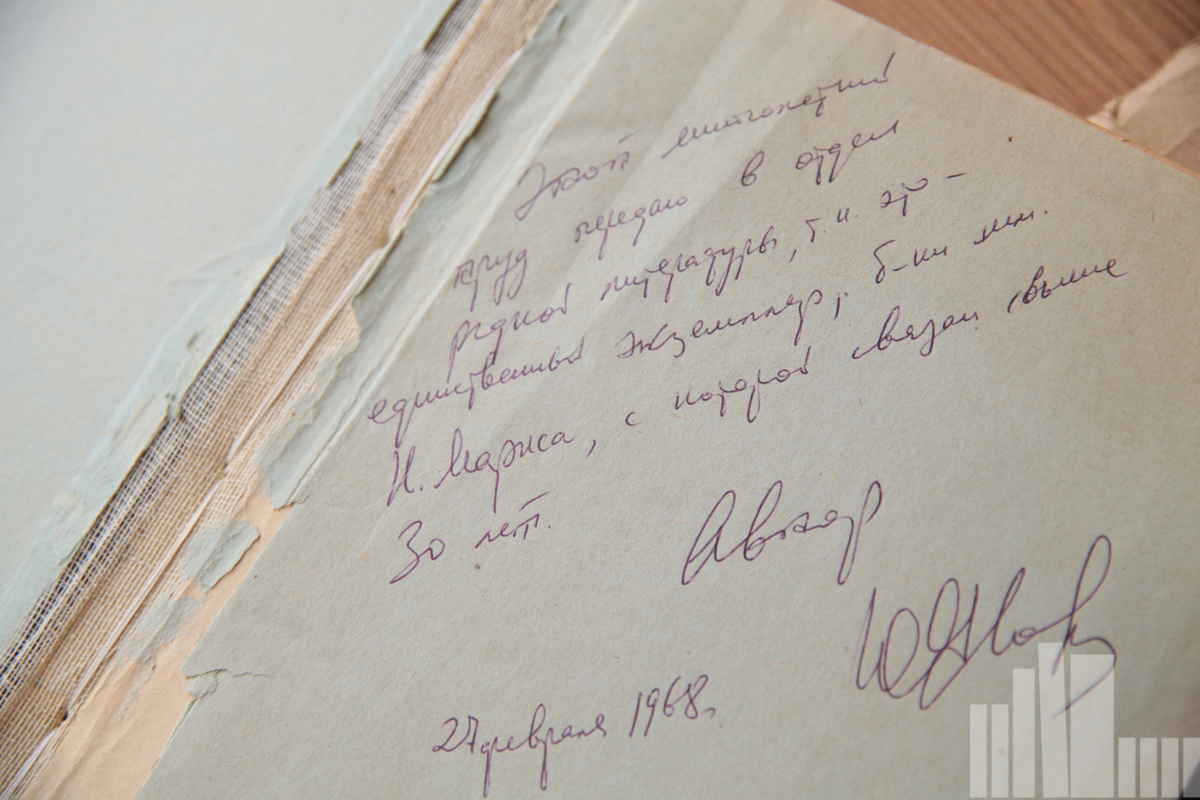 Этот многолетний
труд передаю в отдел
редкой литературы, т.к. это –
единственный экземпляр, б-ки им.
К. Маркса, с которой связан свыше
30 лет.
Автор
27 февраля 1968г.